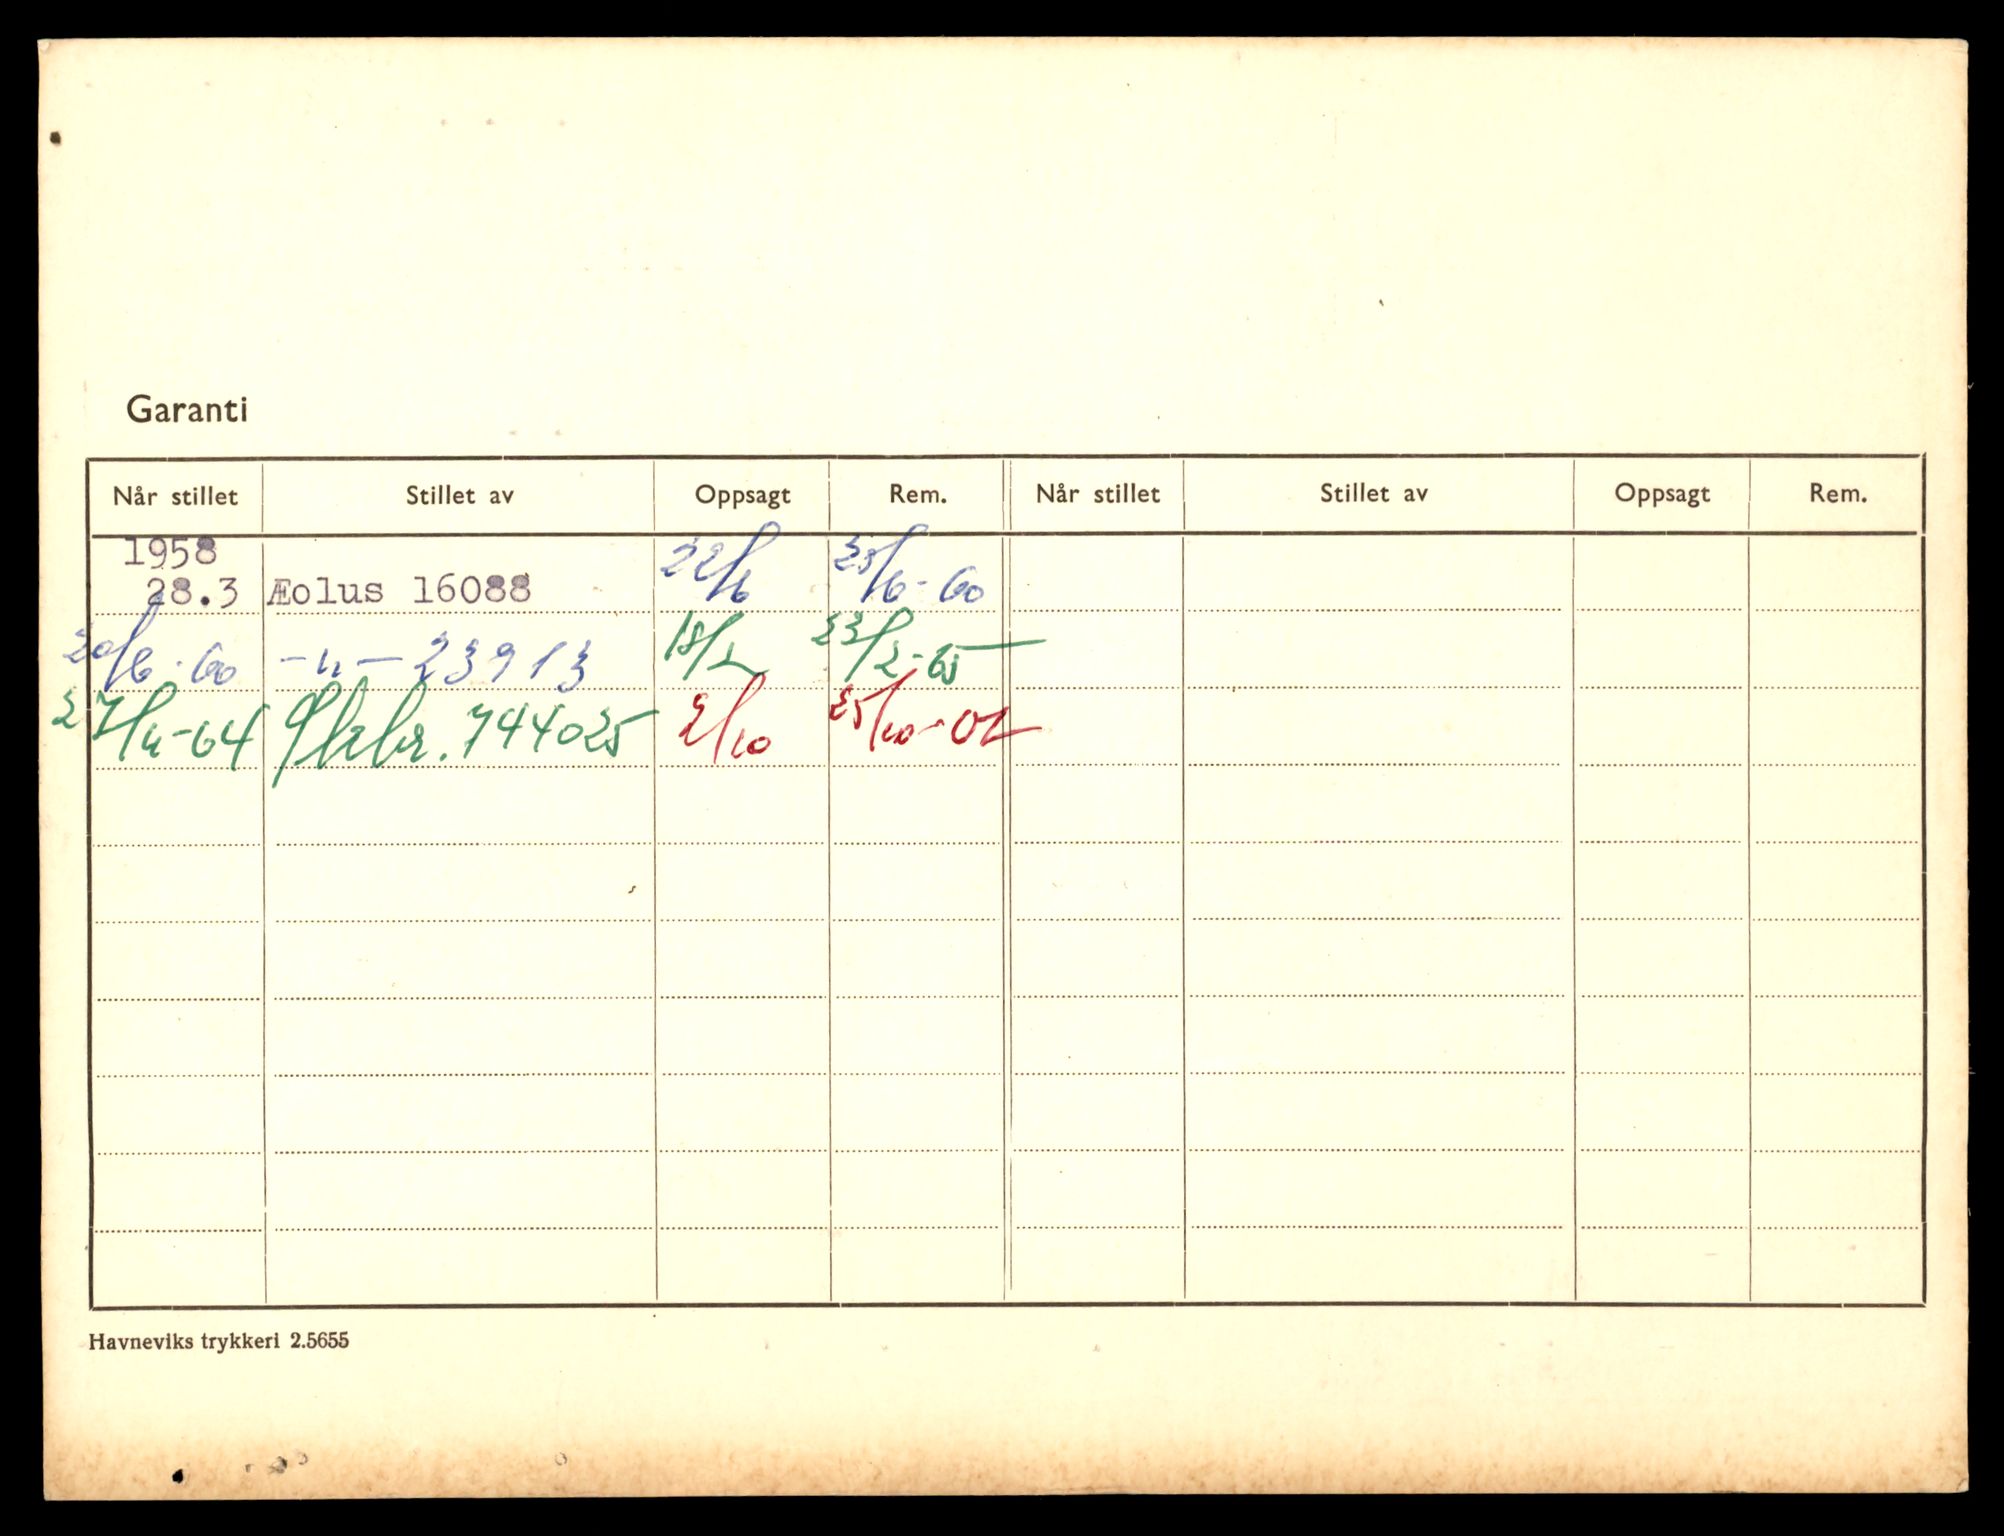 Garanti
Når stillet Stillet av Oppsagt Rem. Når stillet Stillet av Oppsagt Rem.
1958
28.3 Æolus 16088 22/6 25/6-60
20/6-60 -"- 23913 18/2 23/2-65
27/11-64 744025 2/10 25/10-
Havneviks trykkeri 2.5655